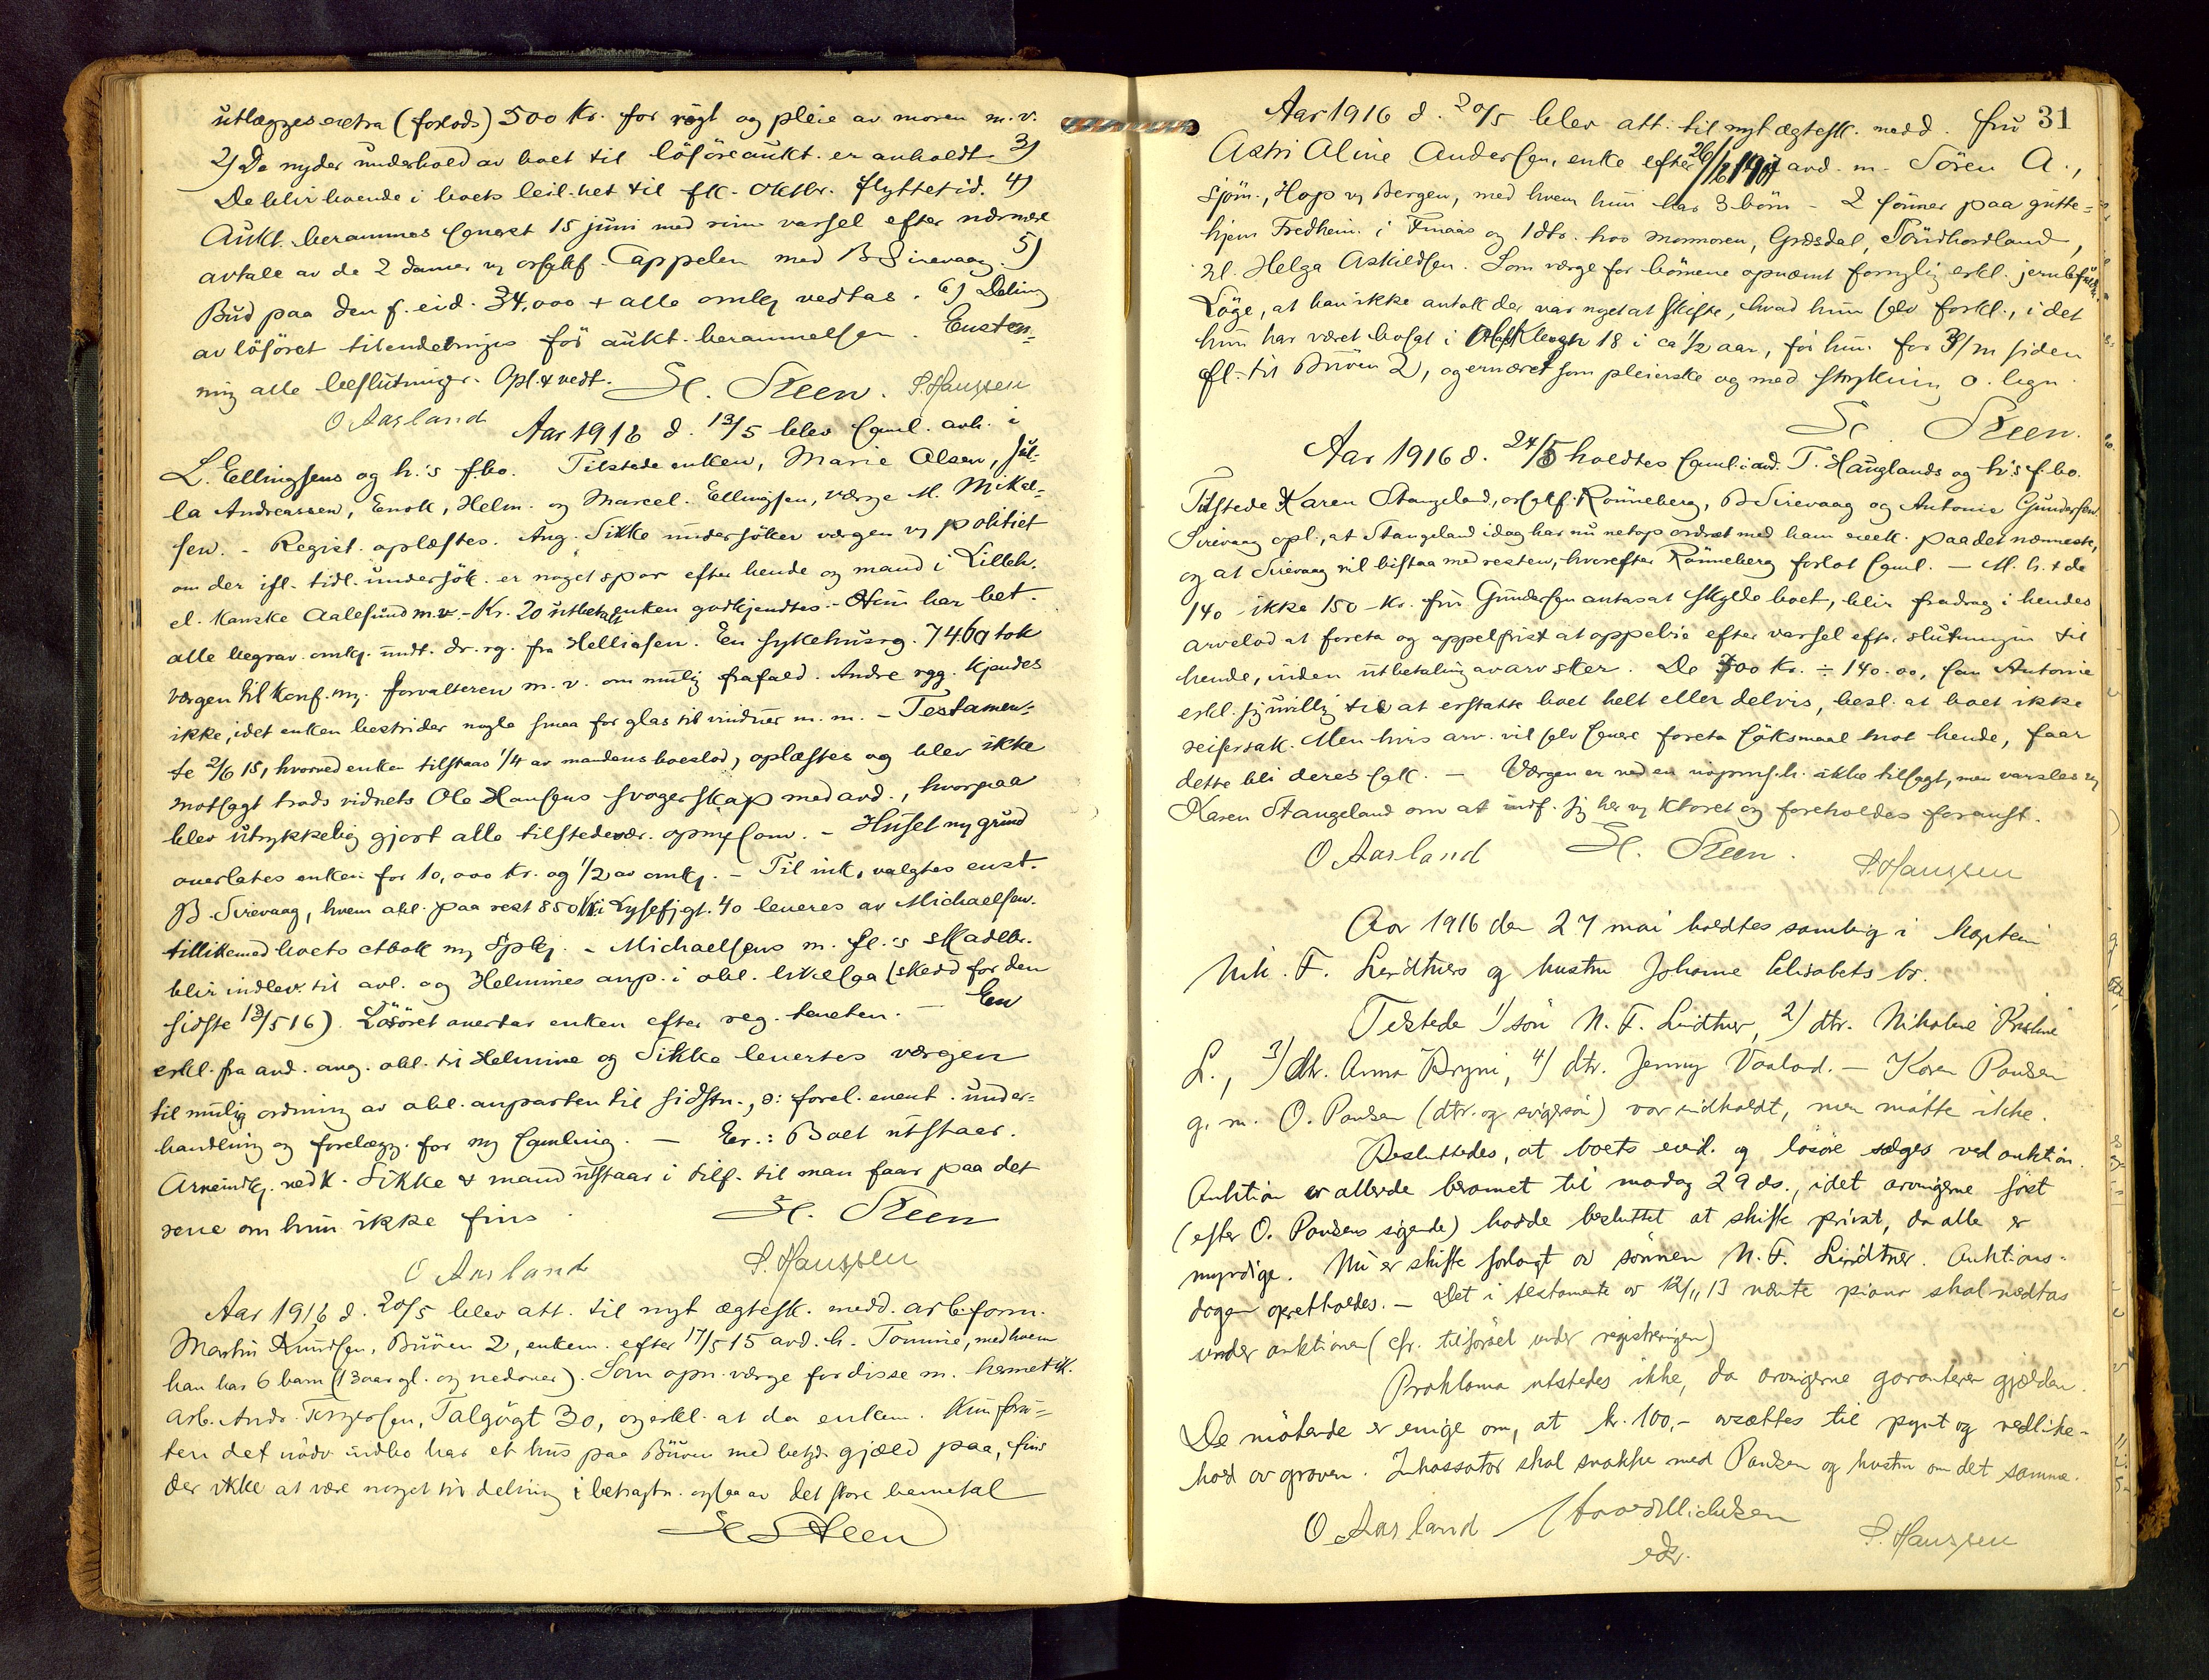 utlægges extra (forlods) 500 Kr. for røgt og pleie av moren m.v.
2) De nyder underhold av boet til lösöreaukt. er anholdt 3)
De blir boende i boets leil.het til fk. Oktbr. flyttetid. 4)
Aukt. berammes senest 15 juni med rim. varsel efter nærmere
avtale av de 2 damer og orsakf. Cappelen med B Sirevaag. 5)
Bud paa den f. eid. 34.000 + alle omkj vedtas. 6) Deling
av lösöret tilendebringes för aukt. berammelsen. Enstem=
mig alle beslutninger. Opl. & vedt. Sc. Steen. S. Hanssen
O Aasland Aar 1916 d. 13/5 blev saml. avh. i
L. Ellingsens og h.'s f.bo. Tilstede enken, Marie Olsen, Jul=
la Andreassen, Enok, Helm. og Marcel. Ellingsen, værge M. Mikal=
sen. - Regist. oplæstes. Ang. Sikke undersöker værgen og politiet
om der ifl. tidl. undersök. er noget spor efter hende og mand i Lilleh.
el. kanske Aalesund m.v. - Kr. 20 utbetalt enken godkjendtes. - Hun har bet.
alle begrav. omkj. undt. dr. rg. fra Helliesen. En sykehusrg. 7460 tok
værgen til konf. m. forvalteren m.v. om mulig frafald. Andre rgg. kjendes
ikke, idet enken bestrider nogle smaa for glas til vinduer m.m. - Testamen=
te 2/6 15, hvorved enken tilstaas 1/4 av mandens boeslod, oplæstes og blev ikke
motsagt trods vidnets Ole Hansens svogerskap med avd., hvorpaa
blev utrykkelig gjort alle tilstedevær. opmerksom. - Huset m grund
overlates enken for 10,000 kr. og 1/2 av omkj. - Til ink. valgtes enst.
B. Sirevaag, hvem obl. paa rest 850 Kr i Lysefjgt. 40 leveres av Michaelsen.
tillikemed boets ctbok m Spkj. - Michaelsens m. fl.'s skadebr.
blir indlev. til avl. og Helmines anp. i obl. likesaa (skedd for den
sidste 13/5 16). Lösöret overtar enken efter reg. taksten. - En
erkl. fra avd. ang. obl. til Helmine og Sikke leveres værgen
til mulig ordning av obl. anparten til sidstn., ɔ: forel. event. under=
handling og forelægg. for ny samling. - Er.: Boet utstaar.
Arveindkj. ved k. Sikke & mand utstaar i tilf. til man faar paa det
rene om hun ikke fins. Sc. Steen
O Aasland S. Hanssen
Aar 1916 d. 20/5 blev att. til nyt ægtesk. medd. arb.form.
Martin Knudsen, Buöen 2, enkem. efter 17/5 15 avd. h. Tomine, med hvem
han har 6 barn (13 aar gl. og nedover). Som opn. værge for disse m. hermetik.
arb. Andr. Torgersen, Talgögt 30, og erkl. at da enkem. kun foru=
ten det nödv indbo har et hus paa Buöen med betyd. gjæld paa, fins
der ikke at være noget til deling i betragtn. ogsaa av det store barnetal
Sc Steen
31
Aar 1916 d. 20/5 blev att. til nyt ægtesk. medd. fru
Astri Aline Andersen, enke efter 26/12 1907 avd. m. Sören A.,
sjöm., Hop v Bergen, med hvem hun har 3 börn - 2 sönner paa gutte=
hjem Fredheim i Finaas og 1 dtr. hos mormoren, Græsdal, Söndhordland,
nl. Helga Askildsen. Som værge for börnene opnævnt fornylig erkl. jernb.fuldm.
Löge, at han ikke antok der var noget at skifte, hvad hun selv forkl., idet
hun har været bosat i Olaf Kleygt 18 i ca 1/2 aar, för hun for 3/m siden
fl. til Buöen 2, og ernæret som pleierske og med strykning o. lign.
Sc. Steen.
Aar 1916 d. 24/5 holdtes saml. i avd. T. Hauglands og h's f.bo.
Tilstede Karen Stangeland, orsakf. Rönneberg, B Sirevaag og Antonie Gundersen.
Sirevaag opl., at Stangeland idag har nu netop ordnet med ham reek. paa det nænneste,
og at Sirevaag vil bistaa med resten, hvorefter Rönneberg forlot saml. - M. h. t. de
140 - ikke 150 - kr. fru Gundersen antas at skylde boet, blir fradrag i hendes
arvelod at foreta og appelfrist at oppebie efter varsel efter slutningen til
hende, inden utbetaling av arv sker. De 300 kr. ÷ 140.00, som Antonie
erkl. sig uvillig til at erstatte boet helt eller delvis, besl. at boet ikke
reiser sak. Men hvis arv. vil selv senere foreta söksmaal mot hende, faar
dette bli deres sak. - Værgen er ved en uopmrs.h. ikke tilsagt, men varsles og
Karen Stangeland om at indf. sig her og ktoret og foreholdes foranst.
O Aasland Sc. Steen. S. Hanssen
Aar 1916 den 27 mai holdtes samling i kaptein
Nik. F. Lindtners og hustru Johanne Elisabets bo.
Tilstede 1) sön N. F. Lindtner, 2) dtr. Nikoline Kristine
L., 3) dtr. Anna Bryni, 4) dtr. Jenny Vaaland. - Karen Paulsen
g. m. O. Paulsen (dtr. og svigersön) var indkaldt, men mötte ikke.
Besluttedes, at boets eied. og lösöre sælges ved auktion.
Auktion er allerede beramet til mandag 29 ds., idet arvingerne först
(efter O. Paulsens sigende) hadde besluttet at skifte privat, da alle er
myndige. Nu er skifte forlangt av sönnen N. F. Lindtner. Auktions-
dagen opretholdes. - Det i testamente av 12/11 13 nævnte piano skal medtas
under auktionen (cfr. tilförsel under registreringen)
Proklama utstedes ikke, da arvingerne garanterer gjælden.
De mötende er enige om, at kr. 100,- avsættes til pynt og vedlike-
hold av graven. Inkassator skal snakke med Paulsen og hustru om det samme.
O Aasland S. Hanssen